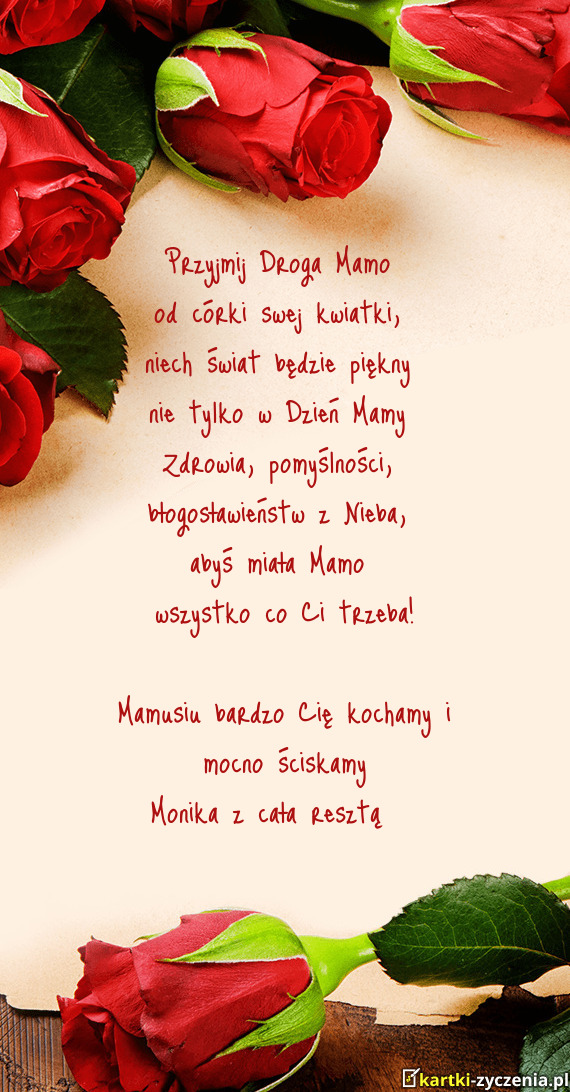 Przyjmij Droga Mamo
od córki swej kwiatki,
niech świat będzie piękny
nie tylko w Dzień Mamy
Zdrowia, pomyślności,
błogosławieństw z Nieba,
abyś miała Mamo
wszystko co Ci trzeba!

Mamusiu bardzo Cię kochamy i
mocno ściskamy
Monika z cała resztą
kartki-zyczenia.pl